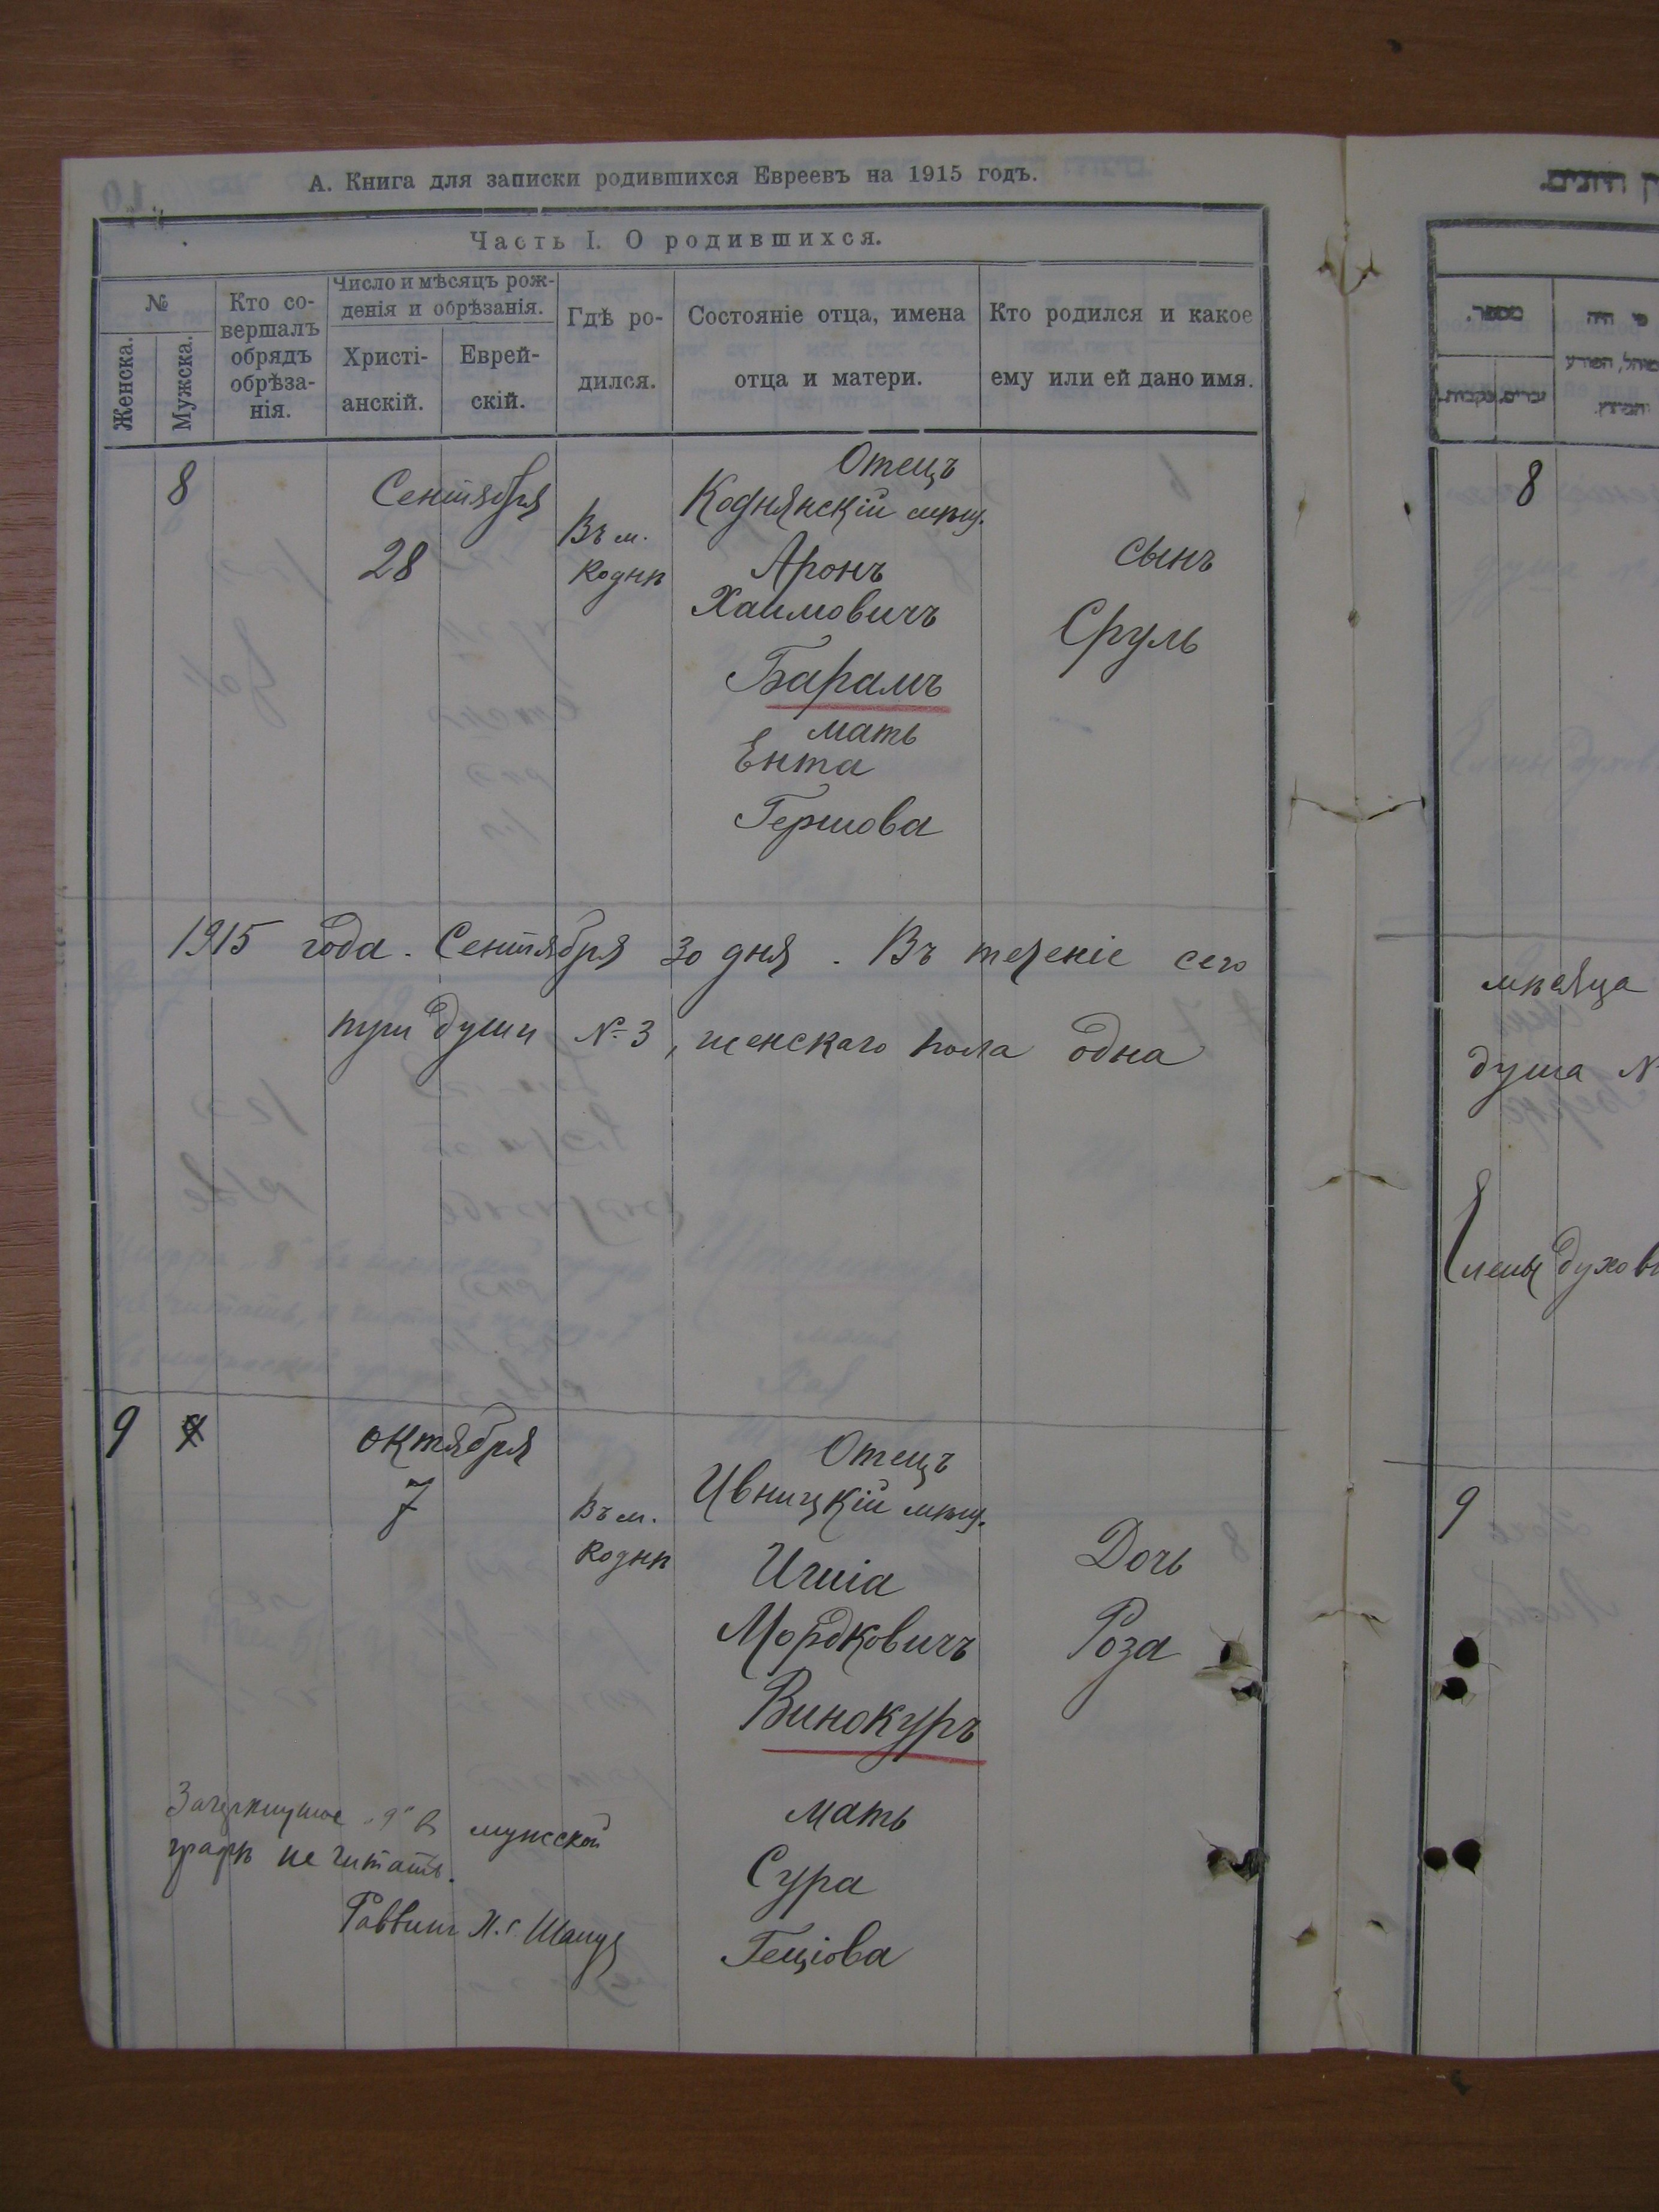 А. Книга для записки родившихся Евреевъ на 1915 годъ.
Часть I. О родившихся.
№
Женска.
Мужска.
Кто со-
вершалъ
обрядъ
обрѣза-
нія.
Число и мѣсяцъ рож-
денія и обрѣзанія.
Христі-
анскій.
Еврей-
скій.
Гдѣ ро-
дился.
Состояніе отца, имена
отца и матери.
Кто родился и какое
ему или ей дано имя.
8
Сентября
28
Въ м.
Коднѣ
Отецъ
Коднянскій мѣщ.
Аронъ
Хаимовичъ
Барамъ
мать
Ента
Гершова
сынъ
Сруль
1915 года. Сентября 30 дня. Въ теченіе сего
три души № 3, женскаго пола одна
9
октября
7
Въ м.
Коднѣ
Отецъ
Ивницкій мѣщ.
Игшіа
Мордковичъ
Винокуръ
мать
Сура
Геціова
Дочь
Роза
Зачеркнутое „9" въ мужской
графѣ не читать.
Раввинъ
מספר.
8
мѣсяца
душа №
Члены духовн
9